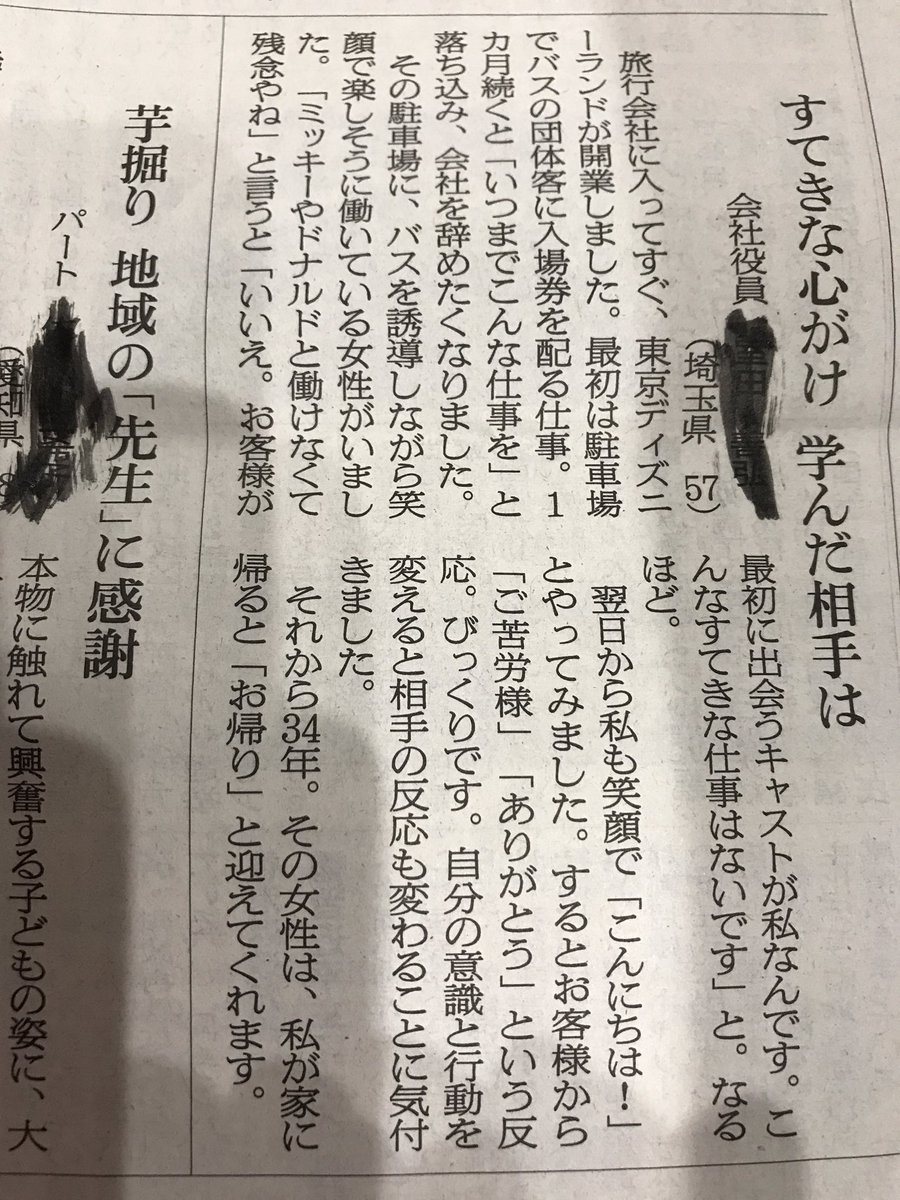 すてきな心がけ 学んだ相手は
会社役員
(埼玉県 57)
旅行会社に入ってすぐ、東京ディズニ
ーランドが開業しました。最初は駐車場
でバスの団体客に入場券を配る仕事。1
カ月続くと「いつまでこんな仕事を」と
落ち込み、会社を辞めたくなりました。
その駐車場に、バスを誘導しながら笑
顔で楽しそうに働いている女性がいまし
た。「ミッキーやドナルドと働けなくて
残念やね」と言うと「いいえ。お客様が
最初に出会うキャストが私なんです。こ
んなすてきな仕事はないです」と。なる
ほど。
翌日から私も笑顔で「こんにちは！」
とやってみました。するとお客様から
「ご苦労様」「ありがとう」という反
応。びっくりです。自分の意識と行動を
変えると相手の反応も変わることに気付
きました。
それから34年。その女性は、私が家に
帰ると「お帰り」と迎えてくれます。
芋掘り 地域の「先生」に感謝
パート
(愛知県
本物に触れて興奮する子どもの姿に、大